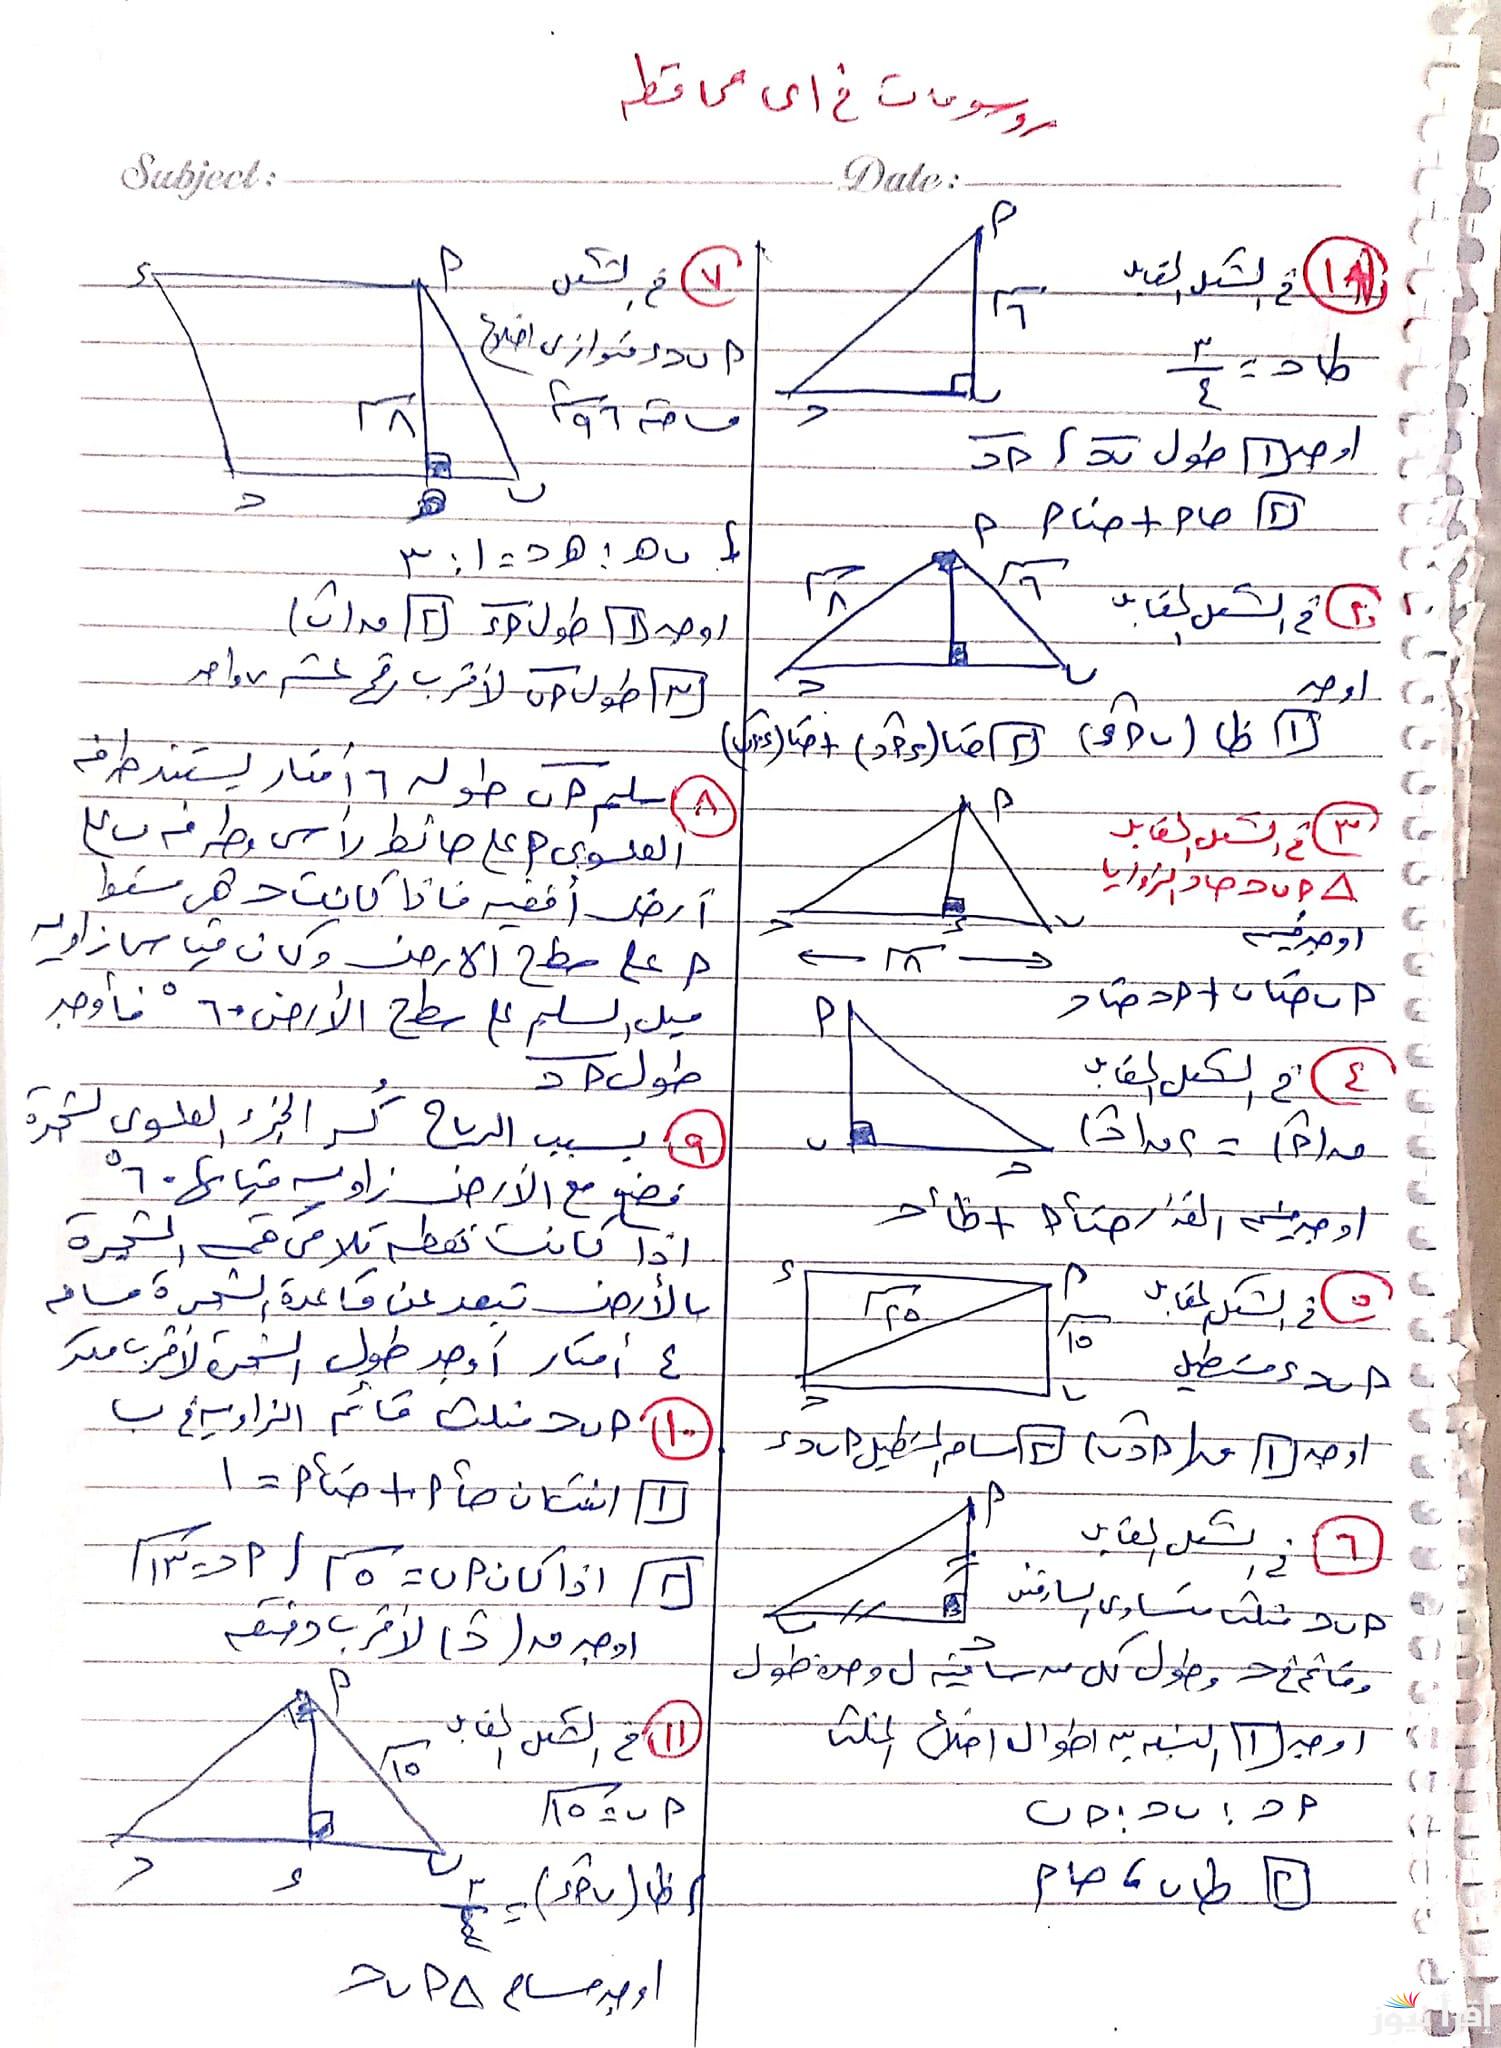 رسومات في اى محافظه
Subject:
Date:
١ في الشكل المقابل
طا حـ = ٣/٤
اوجد ١ طول ب حـ ، أ حـ
٢ حا أ + حتا أ
أ
٦
ب
حـ
٢ في الشكل المقابل
اوجد
١ ظا (ب أ ء) ٢ حتا (ء أ حـ) + حتا (ء أ ب)
أ
٦
٨
ب
حـ
٣ في الشكل المقابل
△ أ ب حـ حاد الزوايا
اوجد قيمه
أ ب حتا ب + أ حـ حتا حـ
أ
ب
ء
حـ
٨
٤ في الشكل المقابل
ق (أ) = ٢ ق (حـ)
اوجد قيمه المقدار حتا٢ أ + ظا٢ حـ
أ
ب
حـ
٥ في الشكل المقابل
أ ب حـ ء مستطيل
اوجد ١ ق (أ حـ ب) ٢ مساحه المستطيل أ ب حـ ء
أ
ء
٢٥
١٥
ب
حـ
٦ في الشكل المقابل
أ ب حـ مثلث متساوى الساقين
وقائم في حـ وطول كل من ساقيه ل وحدة طول
اوجد ١ النسبه بين اطوال اضلاع المثلث
أ حـ : ب حـ : أ ب
٢ طا ب ، حا أ
أ
ب
حـ
٧ في الشكل
أ ب حـ ء متوازى اضلاع
مساحته ٩٦ سم٢
، ب هـ : هـ حـ = ١ : ٣
اوجد ١ طول أ ء ٢ ق (ب)
٣ طول أ ب لأقرب رقم عشرى واحد
ء
أ
٨
حـ
هـ
ب
٨ سلم أ ب طوله ٦ أمتار يستند طرفه
العلوي أ على حائط رأسى وطرفه ب على
أرض أفقيه فاذا كانت حـ هى مسقط
أ على سطح الارض وكان قياس زاويه
ميل السلم على سطح الأرض ٦٠° فأوجد
طول أ حـ
٩ بسبب الرياح كُسر الجزء العلوى لشجرة
فصنع مع الأرض زاويه قياسها ٦٠°
اذا كانت نقطه تلاقى قمه الشجرة
بالأرض تبعد عن قاعدة الشجرة مسافه
٤ أمتار أوجد طول الشجرة لأقرب متر
١٠ أ ب حـ مثلث قائم الزاويه في ب
١ اثبت ان حا٢ أ + حتا٢ أ = ١
٢ اذا كان أ ب = ٥ ، أ حـ = ١٣
اوجد ق (حـ) لأقرب دقيقه
١١ في الشكل المقابل
أ ب = ١٥
، ظا (ب أ ء) = ٣/٤
اوجد مساحه △ أ ب حـ
أ
١٥
ب
ء
حـ
إقرأ نيوز